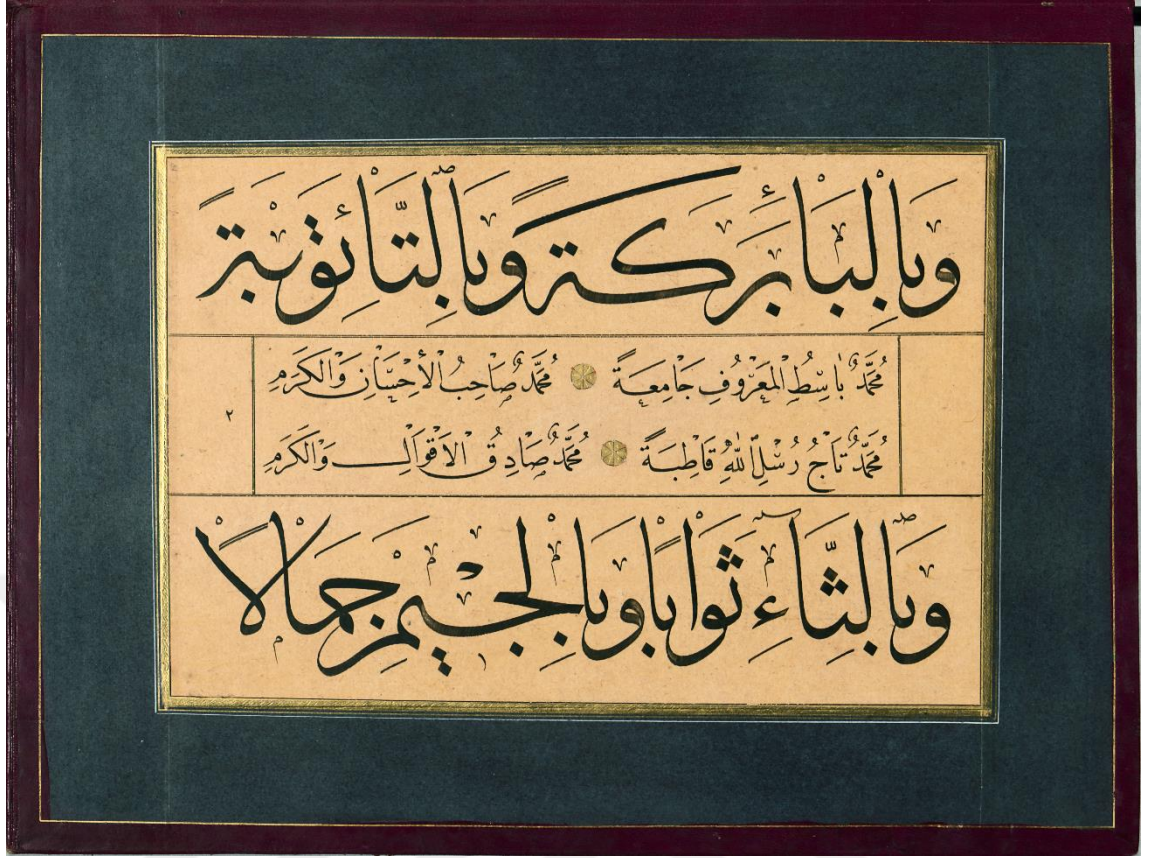 وَبِالْبَاءِ بَرَكَةً وَبِالتَّاءِ تَوْبَةً
مُحَمَّدٌ بَاسِطُ الْمَعْرُوفِ جَامِعَةً مُحَمَّدٌ صَاحِبُ الْأِحْسَانِ وَالْكَرَمِ
٢
مُحَمَّدٌ تَاجُ رُسْلِ اللّٰهِ قَاطِبَةً مُحَمَّدٌ صَادِقُ الْاَقْوَالِ وَالْكَرَمِ
وَبِالثَّاءِ ثَوَابًا وَبِالْجِيمِ جَمَالًا